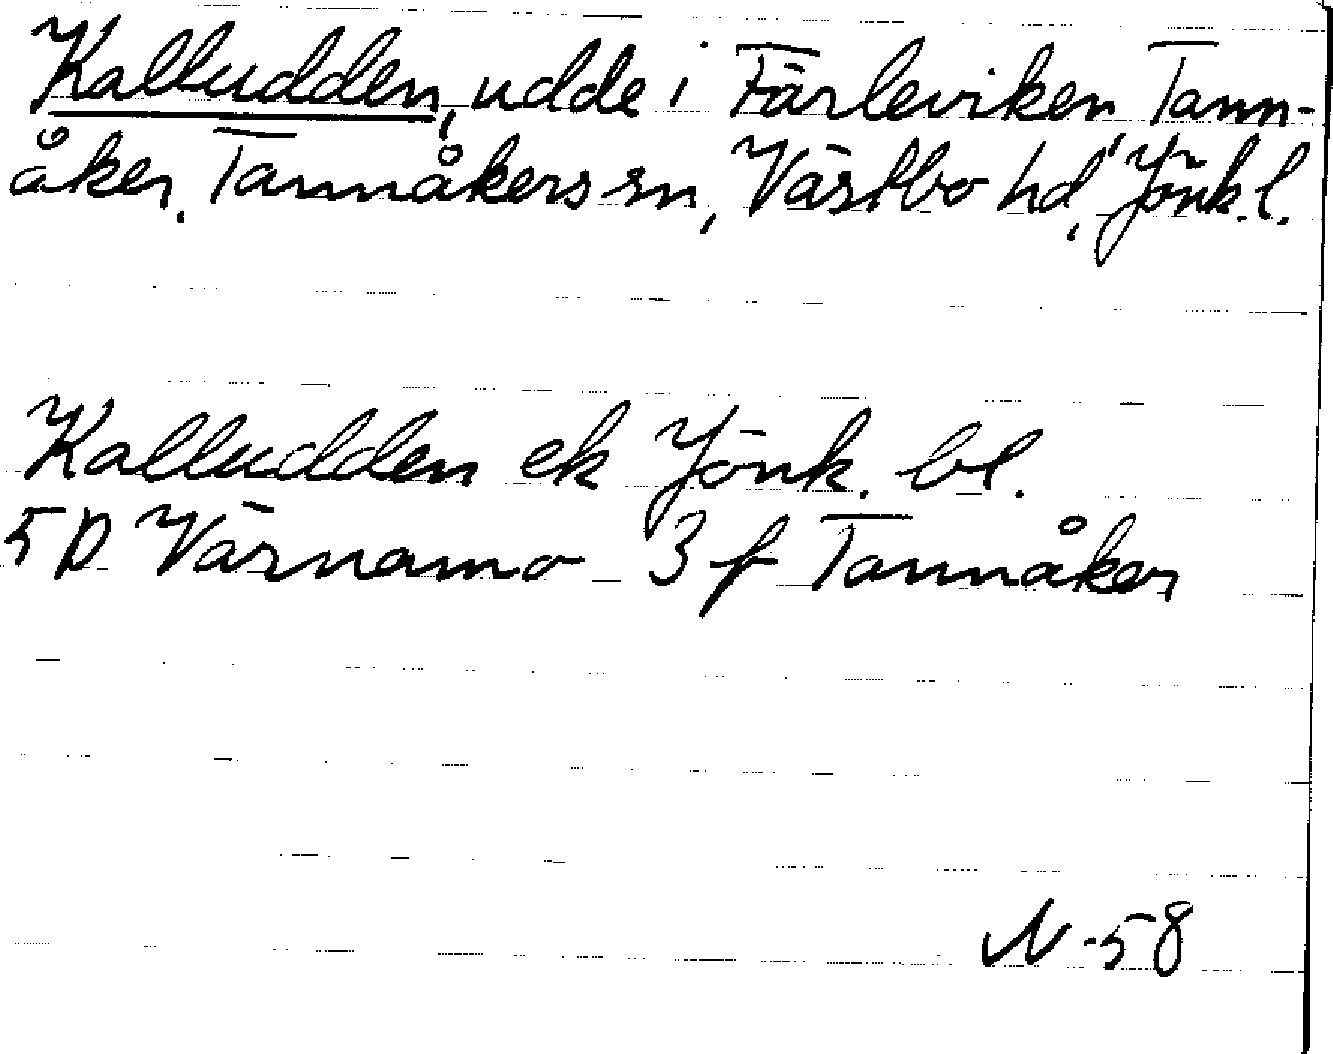 Kalludden, udde i Färleviken, Tann-
åker, Tannåkers sn, Västbo hd, Jönk. l.
Kalludden ek Jönk. bl.
5 D Värnamo 3 f Tannåker
N -58